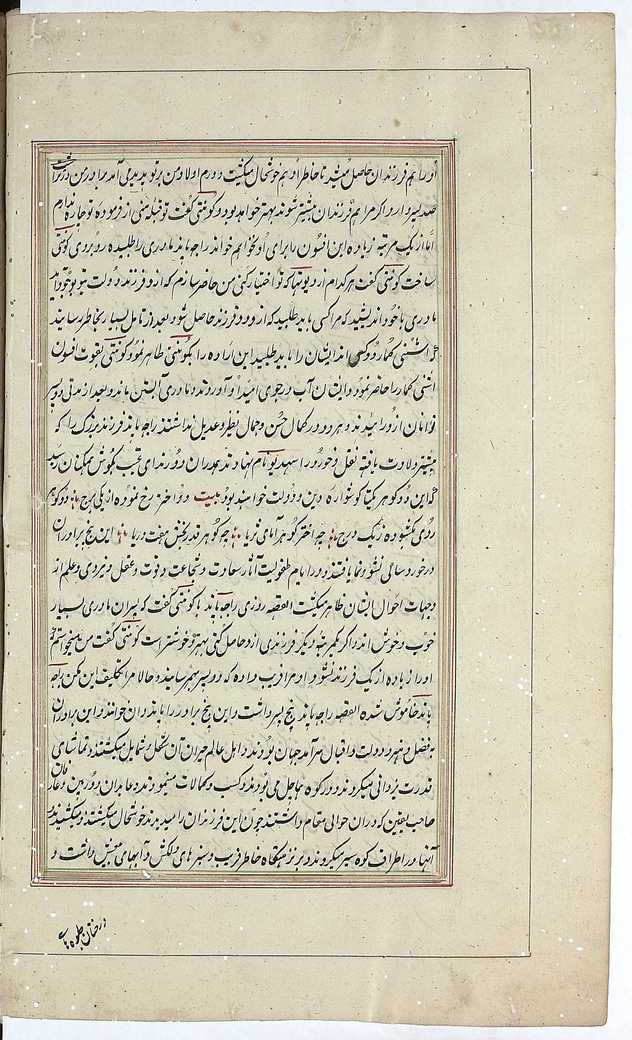 او را هم فرزندان حاصل میشد تا خاطر او هم خوشحال میگشت و دوم اولاد من بر تو پدید می آمد برادر من
صد پسر دارد اگر مرا هم فرزندان بیشتر شوند بهتر خواهد بود و کونتی گفت توقبله منی از فرموده تو چاره ندارم
اما از یک مرتبه زیاده این افسون را برای او نخواهم خواند راجه پاند مادری را طلبیده روبروی کونتی
ساخت کونتی گفت هر کدام از دیوتها که تو اختیار کنی من حاضر سازم که از و فرزند دولت
مادری با خود اندیشید که مرا کسی باید طلبید که از و دو فرزند حاصل شود بعد از تامل بسیار بخاطر رسانید
اشنی کمار دو کس اند ایشان را باید طلبید این اراده را بکونتی ظاهر نمود کونتی بقوت افسون
اشنی کمار را حاضر نمود و ایشان آب در جوی امید او آوردند و مادری آبستن ماند و بعد از مدتی دو پسر
از و زائیدند و هر دو در کمال حسن و جمال نظیر و عدیل نداشتند راجه پاند فرزند بزرگ را که
پیشتر ولادت یافته نکل و خورد را سهدیو نام نهادند دران روز ندای غیب بگوش همگنان رسید
که این دو گوهر یکتا گوشواره دین و دولت خواهند بود بیت دو اختر رخ نموده از یکی برج دو گوهر
روی بگشوده ز یک درج چه اختر گوهر آمای ثریا چه گوهر قدر بخش هفت دریا این پنج برادران
در خورد سالی نشو و نما یافتند و در ایام طفولیت آثار سعادت و شجاعت و قوت و عقل و نیروی و علم از
وجنات احوال ایشان ظاهر میگشت القصه روزی راجه پاند با کونتی گفت که پسران مادری بسیار
خوب و خوش اند اگر یکمرتبه دیگر فرزندی از و حاصل کنی بهتر و خوشتر است کونتی گفت من میخواستم که
او را زیاده از یک فرزند نشود او مرا فریب داده که دو پسر بهم رسانید و حالا مرا تکلیف این مکن راجه
پاند خاموش شده القصه راجه پاند پنج پسر داشت و این پنج برادر را پاندوان خوانند و این برادران
بفضل و هنر و دولت و اقبال سرآمد جهان بودند و اهل عالم حیران آن شکل و شمایل میگشتند و تماشای
قدرت یزدانی میکردند و در کوه هماچل می بودند و کسب و کمالات مینمودند عابدان روی زمین و عارفان
صاحب یقین که دران حوالی مقام داشتند چون این فرزندان را میدیدند خوشحال میگشتند و میگفتند
آنها در اطراف کوه سیر میکردند و بر نزهتگاه خاطر فریب و سبزهای دلکش و آبهای داشت و
درختان جلوه های